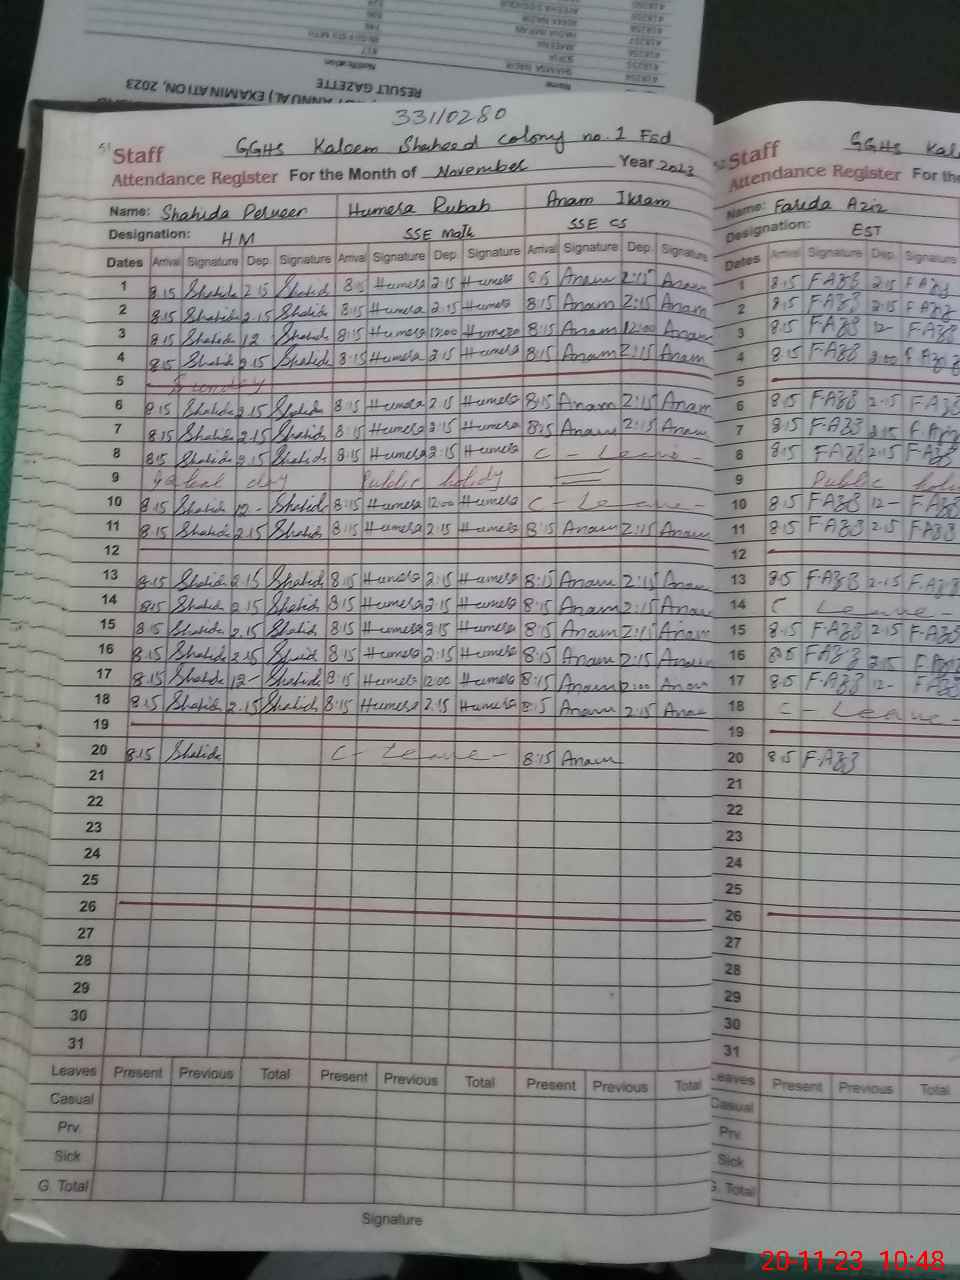 RESULT GAZETTE
ANNUAL) EXAMINATION, 2023
Name Notification
33110280
51 Staff GGHS Kaleem Shaheed colony no. 1 Fsd
Attendance Register For the Month of November Year 2023
Name: Shahida Perveen Humera Rubab Anam Ikram
Designation: HM SSE Math SSE CS
Dates Arrival Signature Dep. Signature Arrival Signature Dep. Signature Arrival Signature Dep. Signature
1 8.15 Shahida 2.15 Shahida 8:15 Humera 2:15 Humera 8:15 Anam 2:15 Anam
2 8.15 Shahida 2.15 Shahida 8:15 Humera 2:15 Humera 8:15 Anam 2:15 Anam
3 8.15 Shahida 12 - Shahida 8:15 Humera 12:00 Humera 8:15 Anam 12:00 Anam
4 8.15 Shahida 2.15 Shahida 8:15 Humera 2:15 Humera 8:15 Anam 2:15 Anam
5 Sunday
6 8.15 Shahida 2.15 Shahida 8:15 Humera 2:15 Humera 8:15 Anam 2:15 Anam
7 8.15 Shahida 2.15 Shahida 8:15 Humera 2:15 Humera 8:15 Anam 2:15 Anam
8 8.15 Shahida 2.15 Shahida 8:15 Humera 2:15 Humera C - Leave -
9 Iqbal day Public holiday
10 8.15 Shahida 12 - Shahida 8:15 Humera 12:00 Humera C - Leave -
11 8.15 Shahida 2.15 Shahida 8:15 Humera 2:15 Humera 8:15 Anam 2:15 Anam
12
13 8.15 Shahida 2.15 Shahida 8:15 Humera 2:15 Humera 8:15 Anam 2:15 Anam
14 8.15 Shahida 2.15 Shahida 8:15 Humera 2:15 Humera 8:15 Anam 2:15 Anam
15 8.15 Shahida 2.15 Shahida 8:15 Humera 2:15 Humera 8:15 Anam 2:15 Anam
16 8.15 Shahida 2.15 Shahida 8:15 Humera 2:15 Humera 8:15 Anam 2:15 Anam
17 8.15 Shahida 12 - Shahida 8:15 Humera 12:00 Humera 8:15 Anam 12:00 Anam
18 8.15 Shahida 2.15 Shahida 8:15 Humera 2:15 Humera 8:15 Anam 2:15 Anam
19
20 8.15 Shahida C - Leave - 8:15 Anam
21
22
23
24
25
26
27
28
29
30
31
Leaves Present Previous Total Present Previous Total Present Previous Total
Casual
Prv.
Sick
G. Total
Signature
52 Staff GGHS Kal
Attendance Register For the
Name: Farida Aziz
Designation: EST
Dates Arrival Signature Dep. Signature
1 8.15 F.Aziz 2.15 F.Aziz
2 8.15 F.Aziz 2.15 F.Aziz
3 8.15 F.Aziz 12 - F.Aziz
4 8.15 F.Aziz 2:00 F.Aziz
5
6 8.15 F.Aziz 2.15 F.Aziz
7 8.15 F.Aziz 2.15 F.Aziz
8 8.15 F.Aziz 2.15 F.Aziz
9 Public
10 8.15 F.Aziz 12 - F.Aziz
11 8.15 F.Aziz 2.15 F.Aziz
12
13 8.15 F.Aziz 2.15 F.Aziz
14 C Leave -
15 8.15 F.Aziz 2.15 F.Aziz
16 8.15 F.Aziz 2.15 F.Aziz
17 8.15 F.Aziz 12 - F.Aziz
18 C - Leave -
19
20 8.15 F.Aziz
21
22
23
24
25
26
27
28
29
30
31
Leaves Present Previous Total
Casual
Prv.
Sick
G. Total
20-11-23 10:48